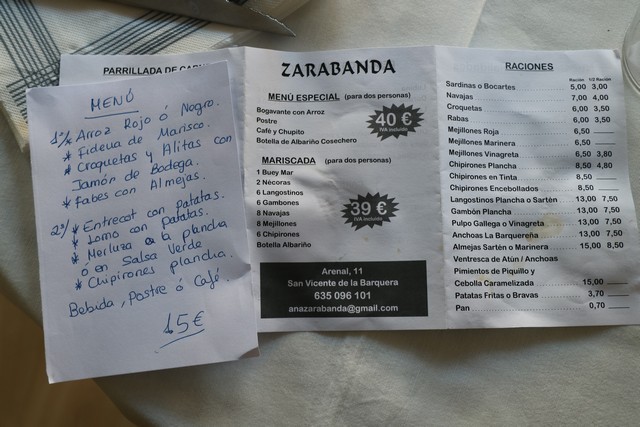 MENÚ
1º/* Arroz Rojo ó Negro.
* Fideua de Marisco.
* Croquetas y Alitas con
Jamón de Bodega.
* Fabes con Almejas.
2º/* Entrecot con patatas.
* Lomo con patatas.
* Merluza a la plancha
ó en Salsa Verde
* Chipirones plancha.
Bebida, Postre ó Café.
15€
PARRILLADA DE
ZARABANDA
MENÚ ESPECIAL (para dos personas)
Bogavante con Arroz
Postre
Café y Chupito
Botella de Albariño Cosechero
40 €
IVA incluido
MARISCADA (para dos personas)
1 Buey Mar
2 Nécoras
6 Langostinos
6 Gambones
8 Navajas
8 Mejillones
6 Chipirones
Botella Albariño
39 €
IVA incluido
Arenal, 11
San Vicente de la Barquera
635 096 101
anazarabanda@gmail.com
RACIONES
Ración 1/2 Ración
Sardinas o Bocartes 5,00 3,00
Navajas 7,00 4,00
Croquetas 6,00 3,50
Rabas 6,00 3,50
Mejillones Roja 6,50
Mejillones Marinera 6,50
Mejillones Vinagreta 6,50 3,80
Chipirones Plancha 8,50 4,80
Chipirones en Tinta 8,50
Chipirones Encebollados 8,50
Langostinos Plancha o Sartén 13,00 7,50
Gambón Plancha 13,00 7,50
Pulpo Gallega o Vinagreta 13,00 7,50
Anchoas La Barquereña 13,00 7,50
Almejas Sartén o Marinera 15,00 8,50
Ventresca de Atún / Anchoas
Pimientos de Piquillo y
Cebolla Caramelizada 15,00
Patatas Fritas o Bravas 3,70
Pan 0,70